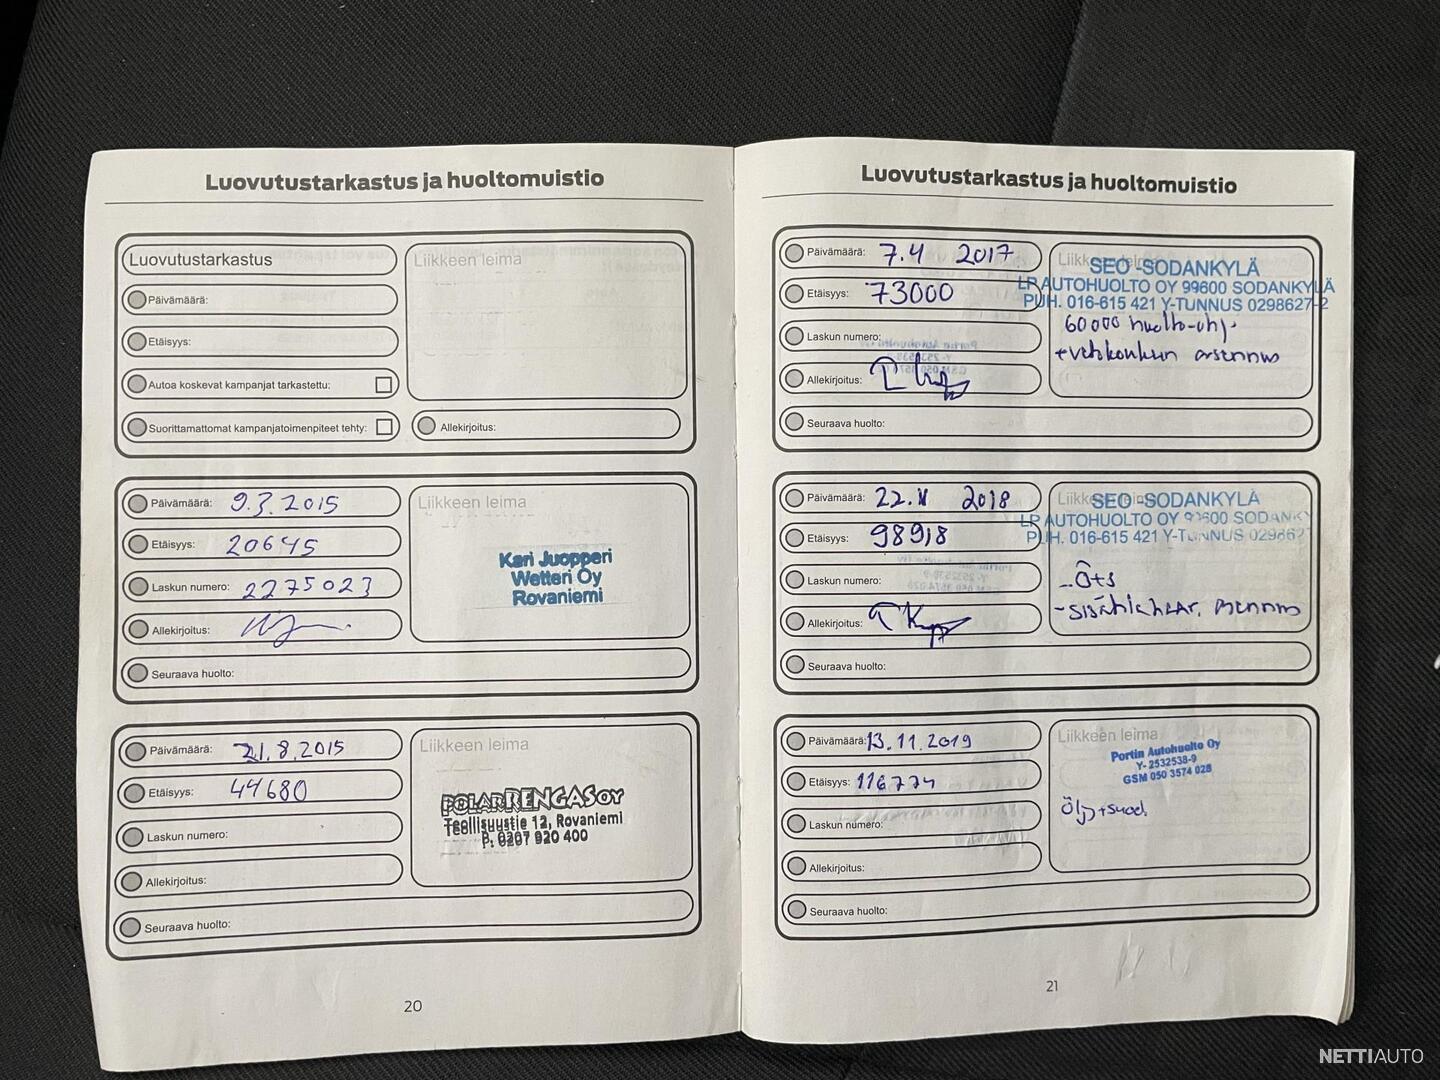 Luovutustarkastus ja huoltomuistio
Luovutustarkastus
Päivämäärä:
Etäisyys:
Autoa koskevat kampanjat tarkastettu:
Suorittamattomat kampanjatoimenpiteet tehty:
Liikkeen leima
Allekirjoitus:
Päivämäärä: 9.3.2015
Etäisyys: 20645
Laskun numero: 2275023
Allekirjoitus:
Seuraava huolto:
Liikkeen leima
Kari Juopperi
Wetteri Oy
Rovaniemi
Päivämäärä: 21.8.2015
Etäisyys: 44680
Laskun numero:
Allekirjoitus:
Seuraava huolto:
Liikkeen leima
POLARRENGAS OY
Teollisuustie 12, Rovaniemi
P. 0207 920 400
20
Luovutustarkastus ja huoltomuistio
Päivämäärä: 7.4 2017
Etäisyys: 73000
Laskun numero:
Allekirjoitus:
Seuraava huolto:
SEO -SODANKYLÄ
LP AUTOHUOLTO OY 99600 SODANKYLÄ
PUH. 016-615 421 Y-TUNNUS 0298627-2
60000 huolto-ohj.
+vetokoukun asennus
Päivämäärä: 22. 2018
Etäisyys: 98918
Laskun numero:
Allekirjoitus:
Seuraava huolto:
SEO -SODANKYLÄ
LP AUTOHUOLTO OY 99600 SODANKY
PUH. 016-615 421 Y-TUNNUS 029862
-Ö+s
-sisätilahaar. asennus
Päivämäärä: 13.11.2019
Etäisyys: 116774
Laskun numero:
Allekirjoitus:
Seuraava huolto:
Liikkeen leima
Portin Autohuolto Oy
Y- 2532538-9
GSM 050 3574 028
Öljy+suod.
21
NETTIAUTO